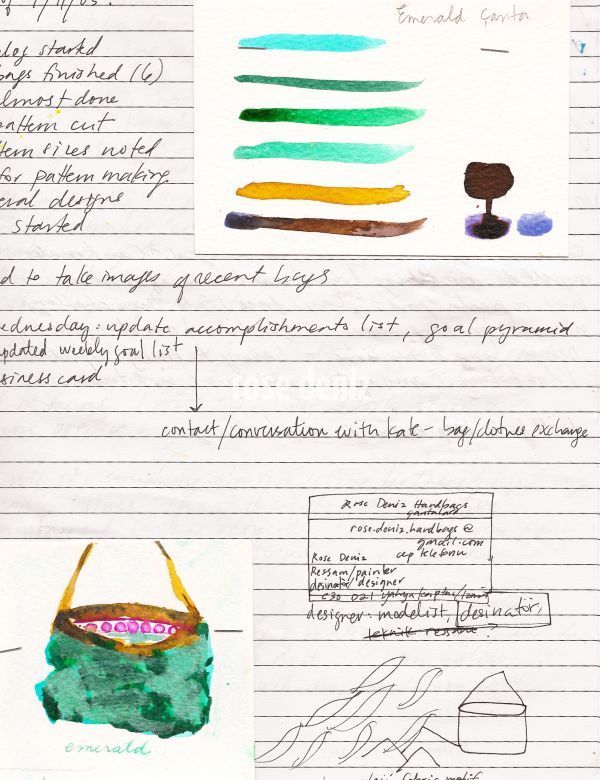 Emerald Çanta
blog started
bags finished (6)
almost done
pattern cut
pattern sizes noted
for pattern making
several designs
started
need to take images of recent bags
Wednesday: update accomplishments list, goal pyramid
updated weekly goal list
business card
rose deniz
contact/conversation with Kate - bag/clothes exchange
Rose Deniz Handbags
çantaları
rose.deniz.handbags @
gmail.com
Rose Deniz cep telefonu
Ressam/painter
desinatör/designer
designer: modelist, desinatör,
teknik ressam ?
emerald
fabric motif